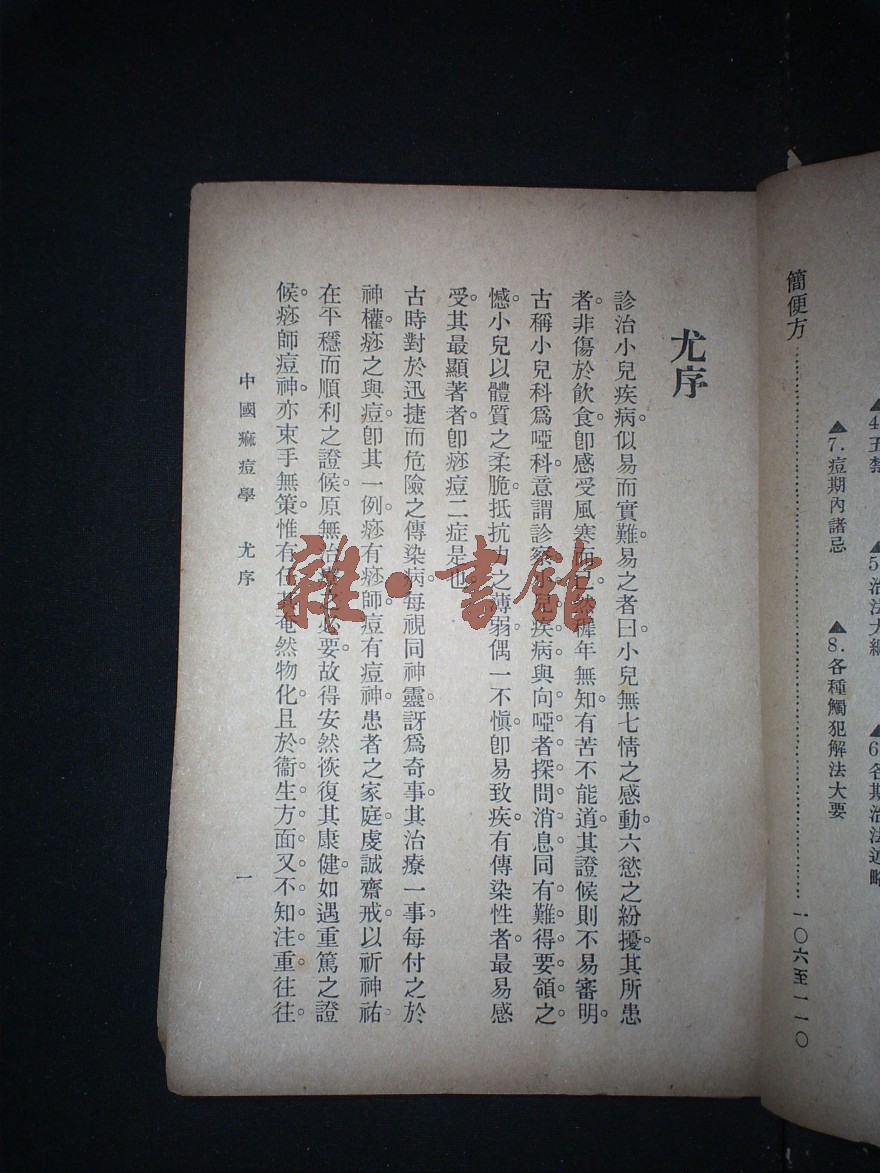 ▲4.五禁
▲5.治法大綱
▲6.各期治法述略
▲7.痘期內諸忌
▲8.各種觸犯解法大要
簡便方 一〇六至一一〇
尤序
診治小兒疾病。似易而實難。易之者曰。小兒無七情之感動。六慾之紛擾。其所患
者。非傷於飲食。卽感受風寒而已。然稚年無知。有苦不能道。其證候則不易審明。
古稱小兒科爲啞科。意謂診察小兒疾病。與向啞者探問消息。同有難得要領之
憾。小兒以體質之柔脆。抵抗力之薄弱。偶一不慎。卽易致疾。有傳染性者。最易感
受。其最顯著者。卽痧痘二症是也。
古時對於迅捷而危險之傳染病。每視同神靈。訝爲奇事。其治療一事。每付之於
神權。痧之與痘。卽其一例。痧有痧師。痘有痘神。患者之家庭。虔誠齋戒。以祈神祐。
在平穩而順利之證候。原無治療之必要。故得安然恢復其康健。如遇重篤之證
候。痧師痘神。亦束手無策。惟有任其奄然物化。且於衞生方面。又不知注重。往往
中國痲痘學 尤序 一
雜·書館